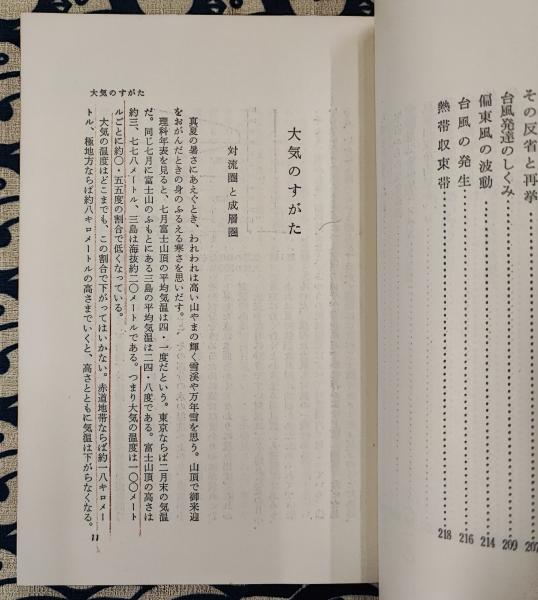 その反省と再挙 207
台風発達のしくみ 209
偏東風の波動 214
台風の発生 216
熱帯収束帯 218
大気のすがた
大気のすがた
対流圏と成層圏
真夏の暑さにあえぐとき、われわれは高い山やまの輝く雪渓や万年雪を思う。山頂で御来迎
をおがんだときの身のふるえる寒さを思いだす。
理科年表を見ると、七月富士山頂の平均気温は四・一度だという。東京ならば二月末の気温
だ。同じ七月に富士山のふもとにある三島の平均気温は二四・八度である。富士山頂の高さは
約三、七七八メートル、三島は海抜約二〇メートルである。つまり大気の温度は一〇〇メート
ルごとに約〇・五五度の割合で低くなっている。
大気の温度はどこまでも、この割合で下がってはいかない。赤道地帯ならば約一八キロメー
トル、極地方ならば約八キロメートルの高さまでいくと、高さとともに気温は下がらなくなる。
11